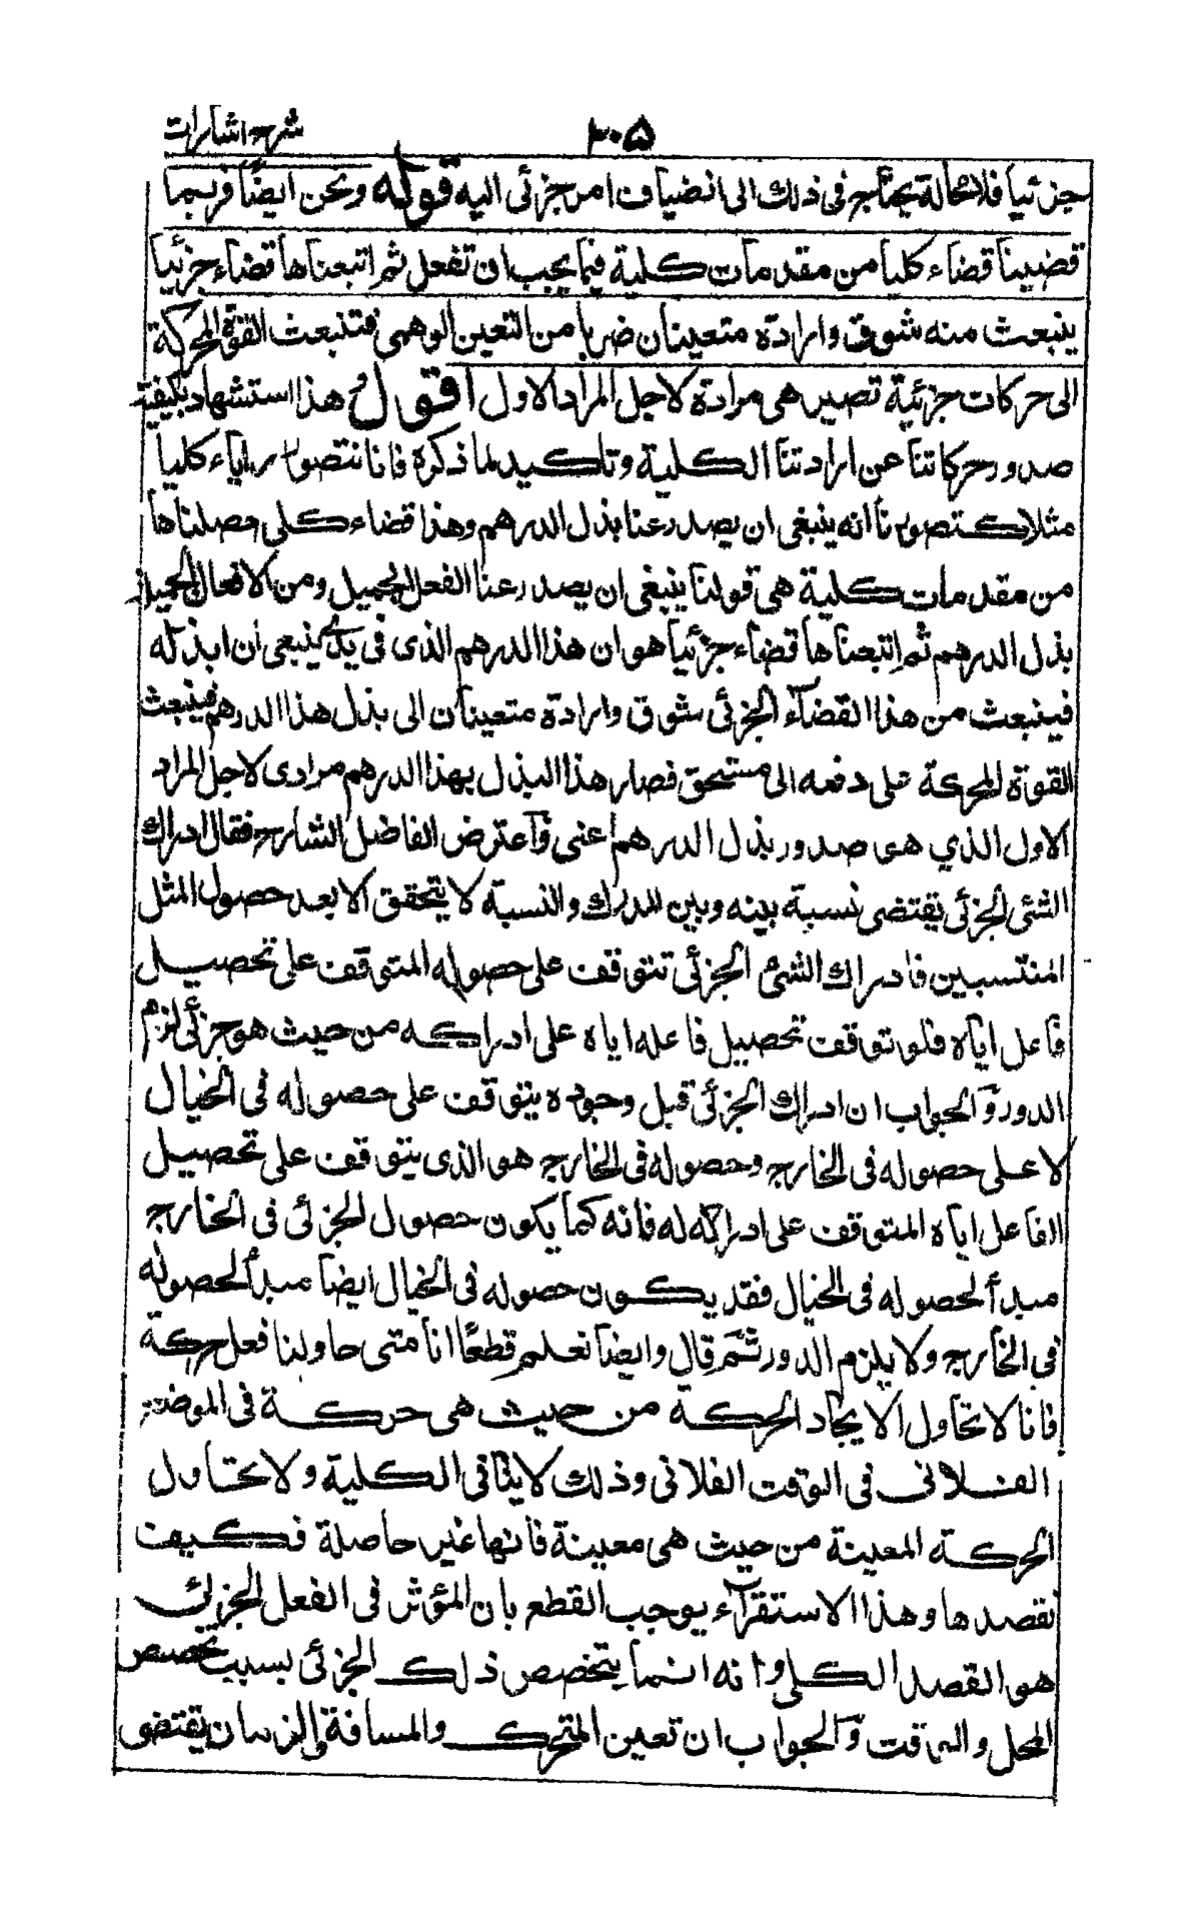 ٣٠٥ شرح اشارات
جزئيا فلا محالة يحتاج فى ذلك الى انضياف امر جزئى اليه قوله ونحن ايضًا فربما
قضينا قضاء كليا من مقدمات كلية فيما يجب ان تفعل ثم اتبعناها قضاء جزئيا
ينبعث منه شوق وارادة متعينان ضربا من التعين الوهمى فتنبعث القوة المحركة
الى حركات جزئية تصير هى مرادة لاجل المراد الاول اقول هذا استشهاد بكيفية
صدور حركاتنا عن ارادتنا الكلية وتاكيد لما ذكره فانا نتصور راياء كليا
مثلا كتصورنا انه ينبغى ان يصدر عنا بذل الدرهم وهذا قضاء كلى حصلناها
من مقدمات كلية هى قولنا ينبغى ان يصدر عنا الفعل الجميل ومن الافعال الجميلة
بذل الدرهم ثم اتبعناها قضاء جزئيا هو ان هذا الدرهم الذى فى يدى ينبغى ان ابذله
فينبعث من هذا القضاء الجزئى شوق وارادة متعينان الى بذل هذا الدرهم فينبعث
القوة المحركة على دفعه الى مستحق فصار هذا البذل بهذا الدرهم مرادى لاجل المراد
الاول الذي هو صدور بذل الدرهم عنى وآعترض الفاضل الشارح فقال ادراك
الشئ الجزئى يقتضى نسبة بينه وبين المدرك والنسبة لا يتحقق الا بعد حصول المثل
المنتسبين فادراك الشئ الجزئى تتوقف على حصوله المتوقف على تحصيل
فاعل اياه فلو توقف تحصيل فاعله اياه على ادراكه من حيث هو جزئى لزم
الدور وآلجواب ان ادراك الجزئى قبل وجوده يتوقف على حصوله فى الخيال
لا على حصوله فى الخارج وحصوله فى الخارج هو الذى يتوقف على تحصيل
الفاعل اياه المتوقف على ادراكه له فانه كما يكون حصول الجزئى فى الخارج
مبدأ لحصوله فى الخيال فقد يكون حصوله فى الخيال ايضا مبدأ لحصوله
فى الخارج ولا يلزم الدور ثم قال وايضا نعلم قطعًا انا متى حاولنا فعل حركة
فانا لا نحاول الا يجاد الحركة من حيث هى حركة فى الموضع
الفلانى فى الوقت الفلانى وذلك لا ينافى الكلية ولا نحاول
الحركة المعينة من حيث هى معينة فانها غير حاصلة فكيف
نقصدها وهذا الاستقرآء يوجب القطع بان المؤثر فى الفعل الجزئى
هو القصد الكلى وانه انما يتخصص ذلك الجزئى بسبب تخصص
المحل والوقت وآلجواب ان تعين المتحرك والمسافة والزمان يقتضى